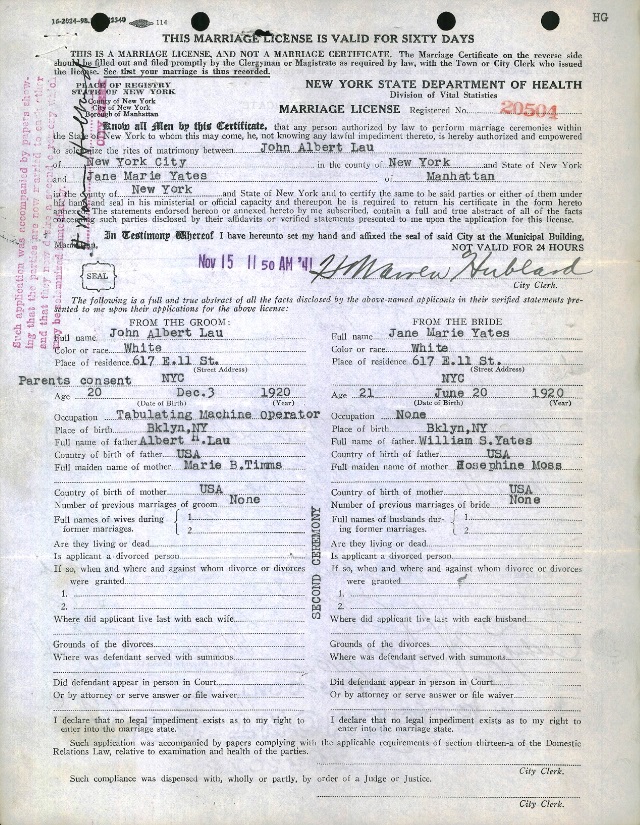 16-2024-98. 114
HG
THIS MARRIAGE LICENSE IS VALID FOR SIXTY DAYS
THIS IS A MARRIAGE LICENSE, AND NOT A MARRIAGE CERTIFICATE. The Marriage Certificate on the reverse side
should be filled out and filed promptly by the Clergyman or Magistrate as required by law, with the Town or City Clerk who issued
the license. See that your marriage is thus recorded.
PLACE OF REGISTRY
STATE OF NEW YORK
County of New York
City of New York
Borough of Manhattan
NEW YORK STATE DEPARTMENT OF HEALTH
Division of Vital Statistics
MARRIAGE LICENSE Registered No. 20504
Know all Men by this Certificate, that any person authorized by law to perform marriage ceremonies within
the State of New York to whom this may come, he, not knowing any lawful impediment thereto, is hereby authorized and empowered
to solemnize the rites of matrimony between John Albert Lau
of New York City in the county of New York and State of New York
and Jane Marie Yates of Manhattan
in the county of New York and State of New York and to certify the same to be said parties or either of them under
his hand and seal in his ministerial or official capacity and thereupon he is required to return his certificate in the form hereto
annexed. The statements endorsed hereon or annexed hereto by me subscribed, contain a full and true abstract of all of the facts
concerning such parties disclosed by their affidavits or verified statements presented to me upon the application for this license.
In Testimony Whereof I have hereunto set my hand and affixed the seal of said City at the Municipal Building,
Manhattan,
NOT VALID FOR 24 HOURS
Nov 15 11 50 AM '41
H Warren Hubbard
City Clerk.
SEAL
The following is a full and true abstract of all the facts disclosed by the above-named applicants in their verified statements pre-
sented to me upon their applications for the above license:
Such application was accompanied by papers show-
ing that the parties are now married to each other
FROM THE GROOM:
Full name John Albert Lau
Color or race White
Place of residence 617 E.11 St.
(Street Address)
NYC
Parents consent
Age 20 Dec.3 1920
(Date of Birth) (Year)
Occupation Tabulating Machine Operator
Place of birth Bklyn,NY
Full name of father Albert H.Lau
Country of birth of father USA
Full maiden name of mother Marie B.Timms
Country of birth of mother USA
Number of previous marriages of groom None
Full names of wives during
former marriages. { 1.
2.
Are they living or dead
Is applicant a divorced person
If so, when and where and against whom divorce or divorces
were granted
1.
2.
Where did applicant live last with each wife
Grounds of the divorces
Where was defendant served with summons
Did defendant appear in person in Court
Or by attorney or serve answer or file waiver
I declare that no legal impediment exists as to my right to
enter into the marriage state.
SECOND CEREMONY
FROM THE BRIDE
Full name Jane Marie Yates
Color or race White
Place of residence 617 E.11 St.
(Street Address)
NYC
Age 21 June 20 1920
(Date of Birth) (Year)
Occupation None
Place of birth Bklyn,NY
Full name of father William S.Yates
Country of birth of father USA
Full maiden name of mother Hosephine Moss
Country of birth of mother USA
Number of previous marriages of bride None
Full names of husbands dur-
ing former marriages. { 1.
2.
Are they living or dead
Is applicant a divorced person
If so, when and where and against whom divorce or divorces
were granted
1.
2.
Where did applicant live last with each husband
Grounds of the divorces
Where was defendant served with summons
Did defendant appear in person in Court
Or by attorney or serve answer or file waiver
I declare that no legal impediment exists as to my right to
enter into the marriage state.
Such application was accompanied by papers complying with the applicable requirements of section thirteen-a of the Domestic
Relations Law, relative to examination and health of the parties.
City Clerk.
Such compliance was dispensed with, wholly or partly, by order of a Judge or Justice.
City Clerk.